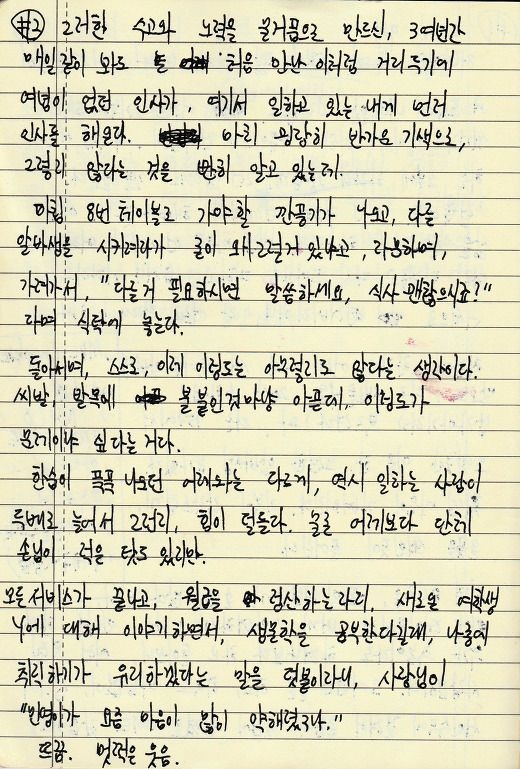 #2 그러한 수고와 노력을 물거품으로 만드신, 3여년간
매일같이 봐도 처음 만난 이처럼 거리두기에
여념이 없던 인사가, 여기서 일하고 있는 내게 먼저
인사를 해온다. 마치 굉장히 반가운 기색으로,
그렇지 않다는 것을 뻔히 알고 있는데.
마침 8번 테이블로 가야할 깐풍기가 나오고, 다른
알바생을 시키려다가 굳이 왜 그럴거 있냐고, 라뭐하며,
가져가서, "다른거 필요하시면 말씀하세요, 식사 괜찮으시죠?"
라며 식탁에 놓는다.
돌아서며, 스스로, 이제 이정도는 아무렇지도 않다는 생각이다.
씨발, 발목에 불 붙인것마냥 아픈데, 이정도가
문제이냐 싶다는 거다.
한숨이 푹푹 나오던 어제와는 다르게, 역시 일하는 사람이
두배로 늘어서 그런지, 힘이 덜든다. 물론 어제보다 단체
손님이 적은 탓도 있지만.
모든 서비스가 끝나고, 월급을 정산하는 자리, 새로온 여학생
Y에 대해 이야기하면서, 생물학을 공부한다길래, 나중에
취직하기가 유리하겠다는 말을 덧붙이자니, 사장님이
"민영이가 요즘 마음이 많이 약해졌구나."
뜨끔. 멋쩍은 웃음.